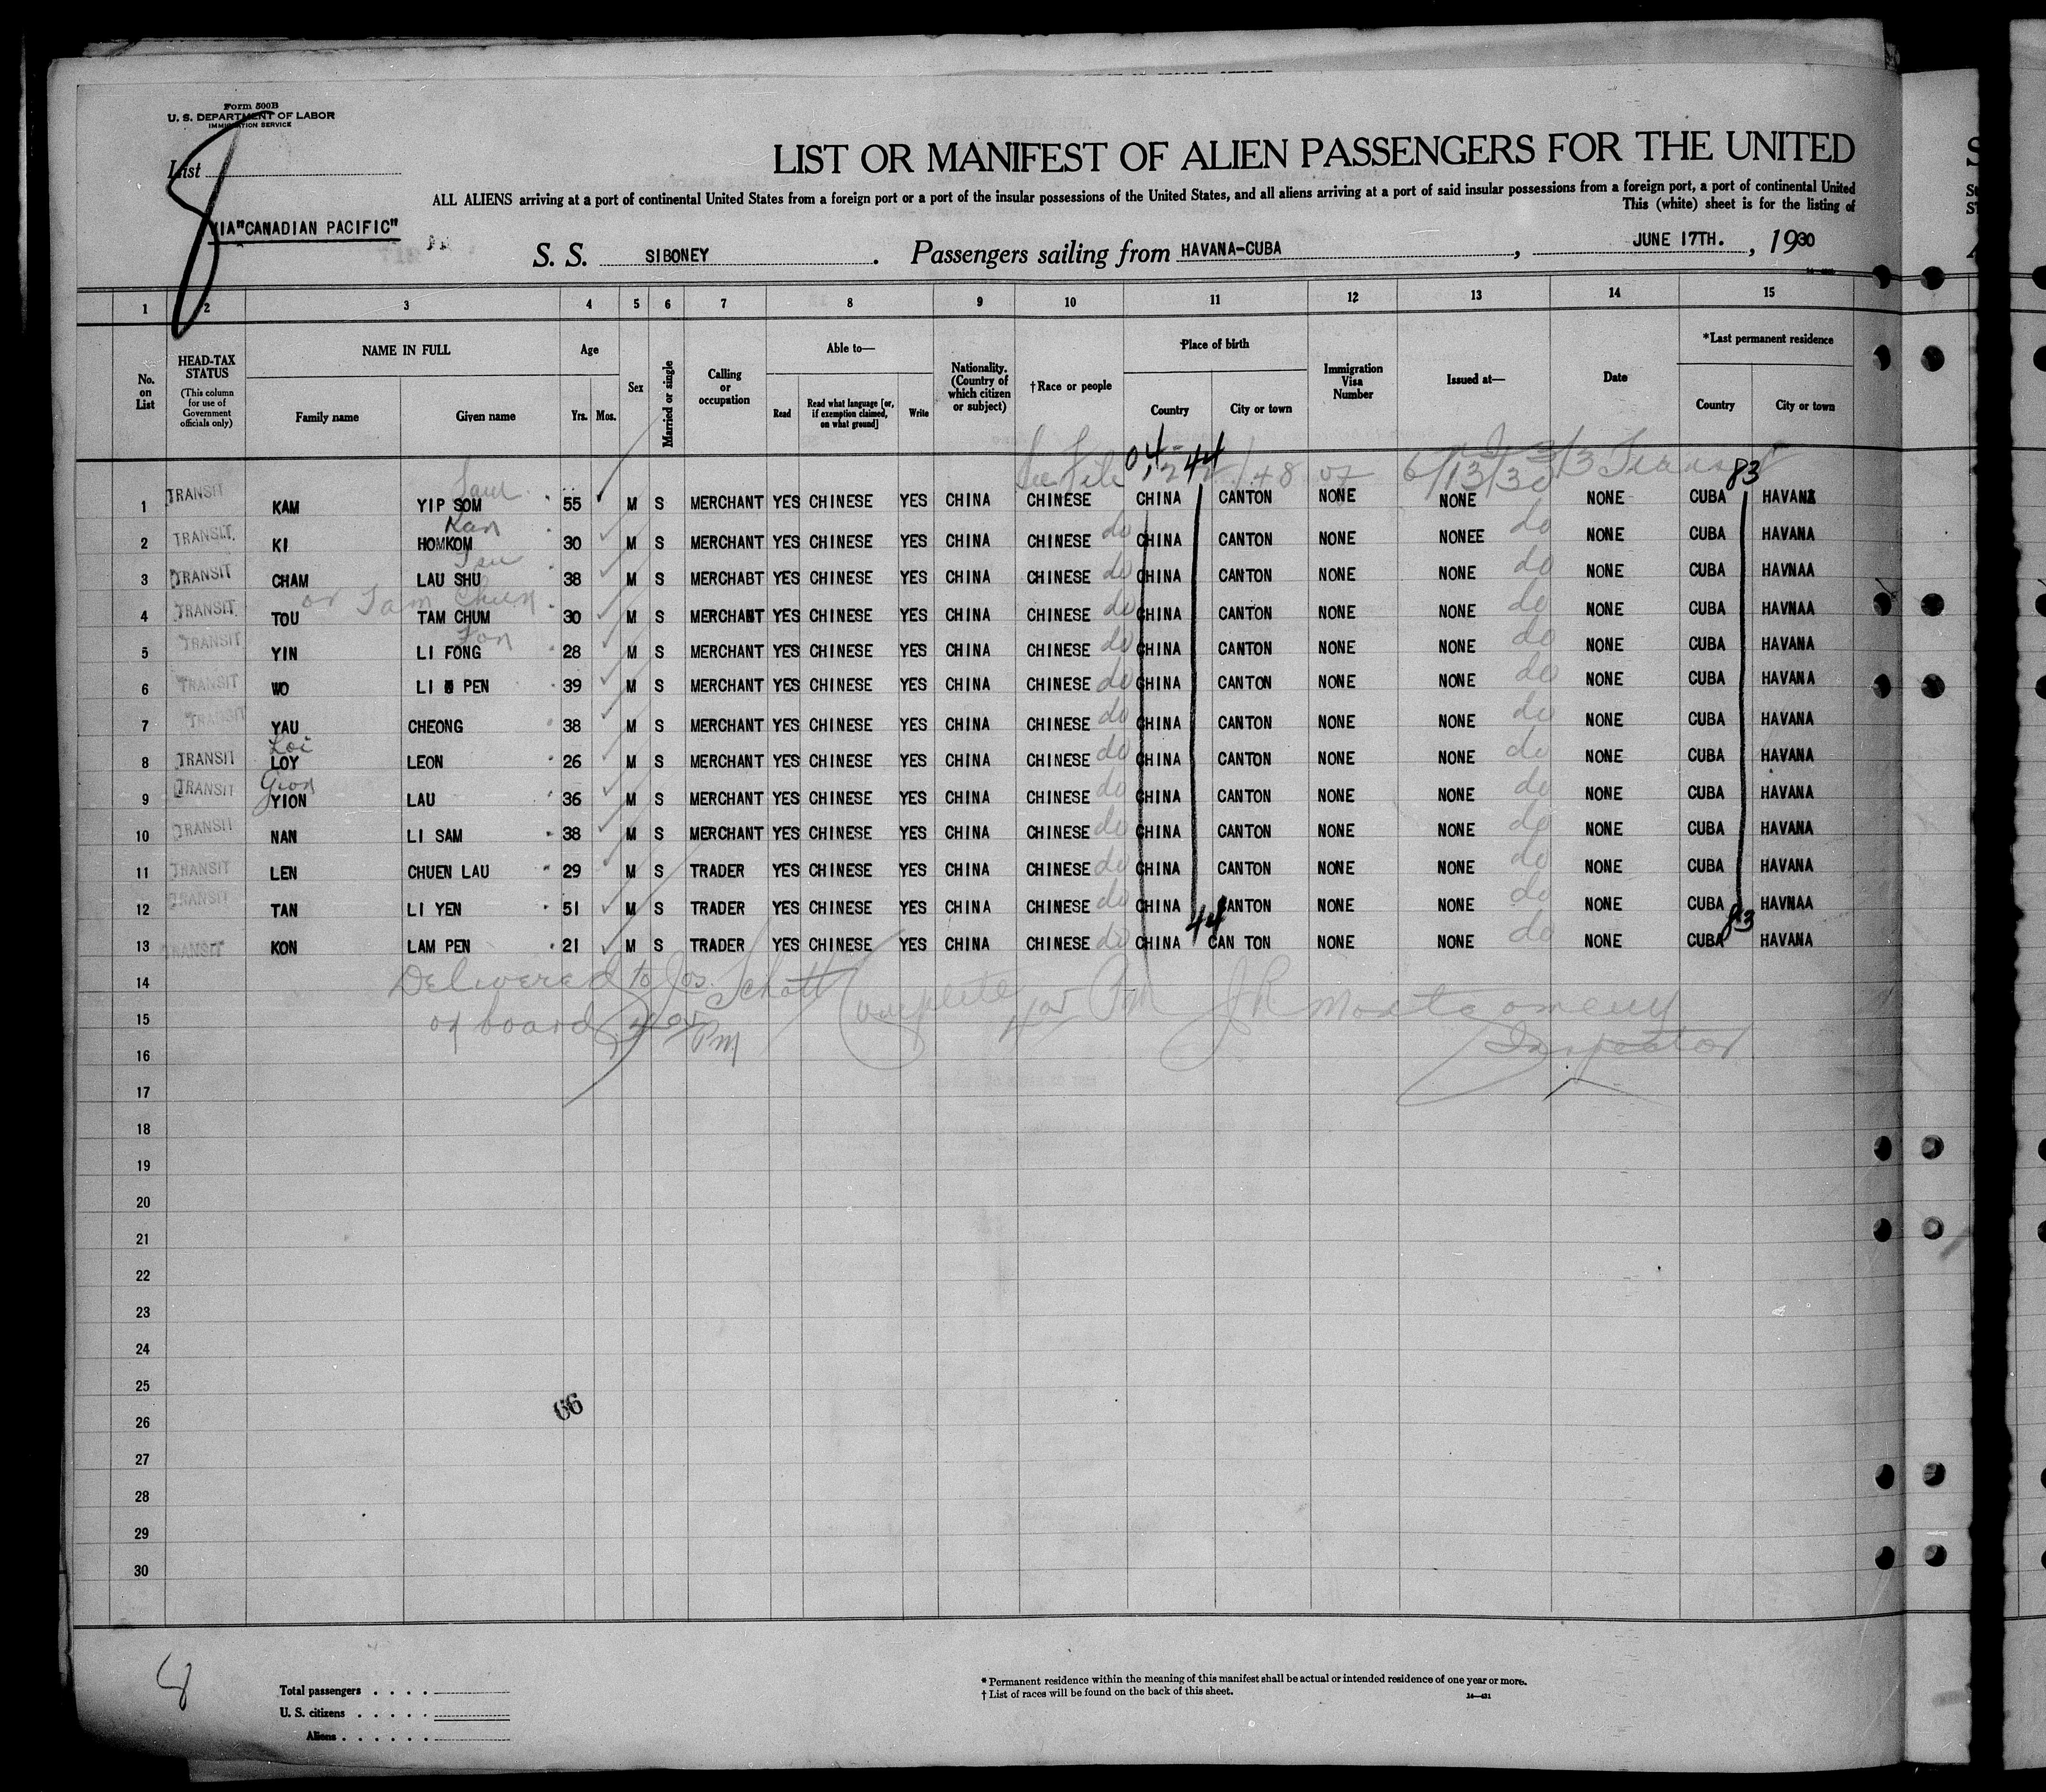 Form 500B
U. S. DEPARTMENT OF LABOR
IMMIGRATION SERVICE
List
8
LIST OR MANIFEST OF ALIEN PASSENGERS FOR THE UNITED
ALL ALIENS arriving at a port of continental United States from a foreign port or a port of the insular possessions of the United States, and all aliens arriving at a port of said insular possessions from a foreign port, a port of continental United
This (white) sheet is for the listing of
VIA"CANADIAN PACIFIC"
S. S. SIBONEY . Passengers sailing from HAVANA-CUBA , JUNE 17TH. , 1930
1 2 3 4 5 6 7 8 9 10 11 12 13 14 15
No. on List
HEAD-TAX STATUS (This column for use of Government officials only)
NAME IN FULL
Family name Given name
Age
Yrs. Mos.
Sex
Married or single
Calling or occupation
Able to—
Read Read what language [or, if exemption claimed, on what ground] Write
Nationality. (Country of which citizen or subject)
†Race or people
Place of birth
Country City or town
Immigration Visa Number
Issued at—
Date
*Last permanent residence
Country City or town
See File 6/13/30 Transit
04 44 83
1 TRANSIT KAM YIP SOM 55 M S MERCHANT YES CHINESE YES CHINA CHINESE CHINA CANTON NONE NONE NONE CUBA HAVANA
Kan
2 TRANSIT KI HOMKOM 30 M S MERCHANT YES CHINESE YES CHINA CHINESE do CHINA CANTON NONE NONEE do NONE CUBA HAVANA
3 TRANSIT CHAM LAU SHU 38 M S MERCHABT YES CHINESE YES CHINA CHINESE do CHINA CANTON NONE NONE do NONE CUBA HAVNAA
or Tam Chun
4 TRANSIT TOU TAM CHUM 30 M S MERCHANT YES CHINESE YES CHINA CHINESE do CHINA CANTON NONE NONE do NONE CUBA HAVNAA
Fon
5 TRANSIT YIN LI FONG 28 M S MERCHANT YES CHINESE YES CHINA CHINESE do CHINA CANTON NONE NONE do NONE CUBA HAVANA
6 TRANSIT WO LI PEN 39 M S MERCHANT YES CHINESE YES CHINA CHINESE do CHINA CANTON NONE NONE do NONE CUBA HAVANA
7 TRANSIT YAU CHEONG 38 M S MERCHANT YES CHINESE YES CHINA CHINESE do CHINA CANTON NONE NONE do NONE CUBA HAVANA
Loi
8 TRANSIT LOY LEON 26 M S MERCHANT YES CHINESE YES CHINA CHINESE do CHINA CANTON NONE NONE do NONE CUBA HAVANA
Gion
9 TRANSIT YION LAU 36 M S MERCHANT YES CHINESE YES CHINA CHINESE do CHINA CANTON NONE NONE do NONE CUBA HAVANA
10 TRANSIT NAN LI SAM 38 M S MERCHANT YES CHINESE YES CHINA CHINESE do CHINA CANTON NONE NONE do NONE CUBA HAVANA
11 TRANSIT LEN CHUEN LAU 29 M S TRADER YES CHINESE YES CHINA CHINESE do CHINA CANTON NONE NONE do NONE CUBA HAVANA
12 TRANSIT TAN LI YEN 51 M S TRADER YES CHINESE YES CHINA CHINESE do CHINA CANTON NONE NONE do NONE CUBA HAVNAA
44 83
13 TRANSIT KON LAM PEN 21 M S TRADER YES CHINESE YES CHINA CHINESE do CHINA CAN TON NONE NONE do NONE CUBA HAVANA
14 Delivered to Jos. Schott Complete 4 05 PM J R Montgomery
15 on board 4 05 PM Inspector
16
17
18
19
20
21
22
23
24
25
66
26
27
28
29
30
8
Total passengers . . . .
U. S. citizens . . . . .
Aliens . . . . . .
* Permanent residence within the meaning of this manifest shall be actual or intended residence of one year or more.
† List of races will be found on the back of this sheet.
14—431